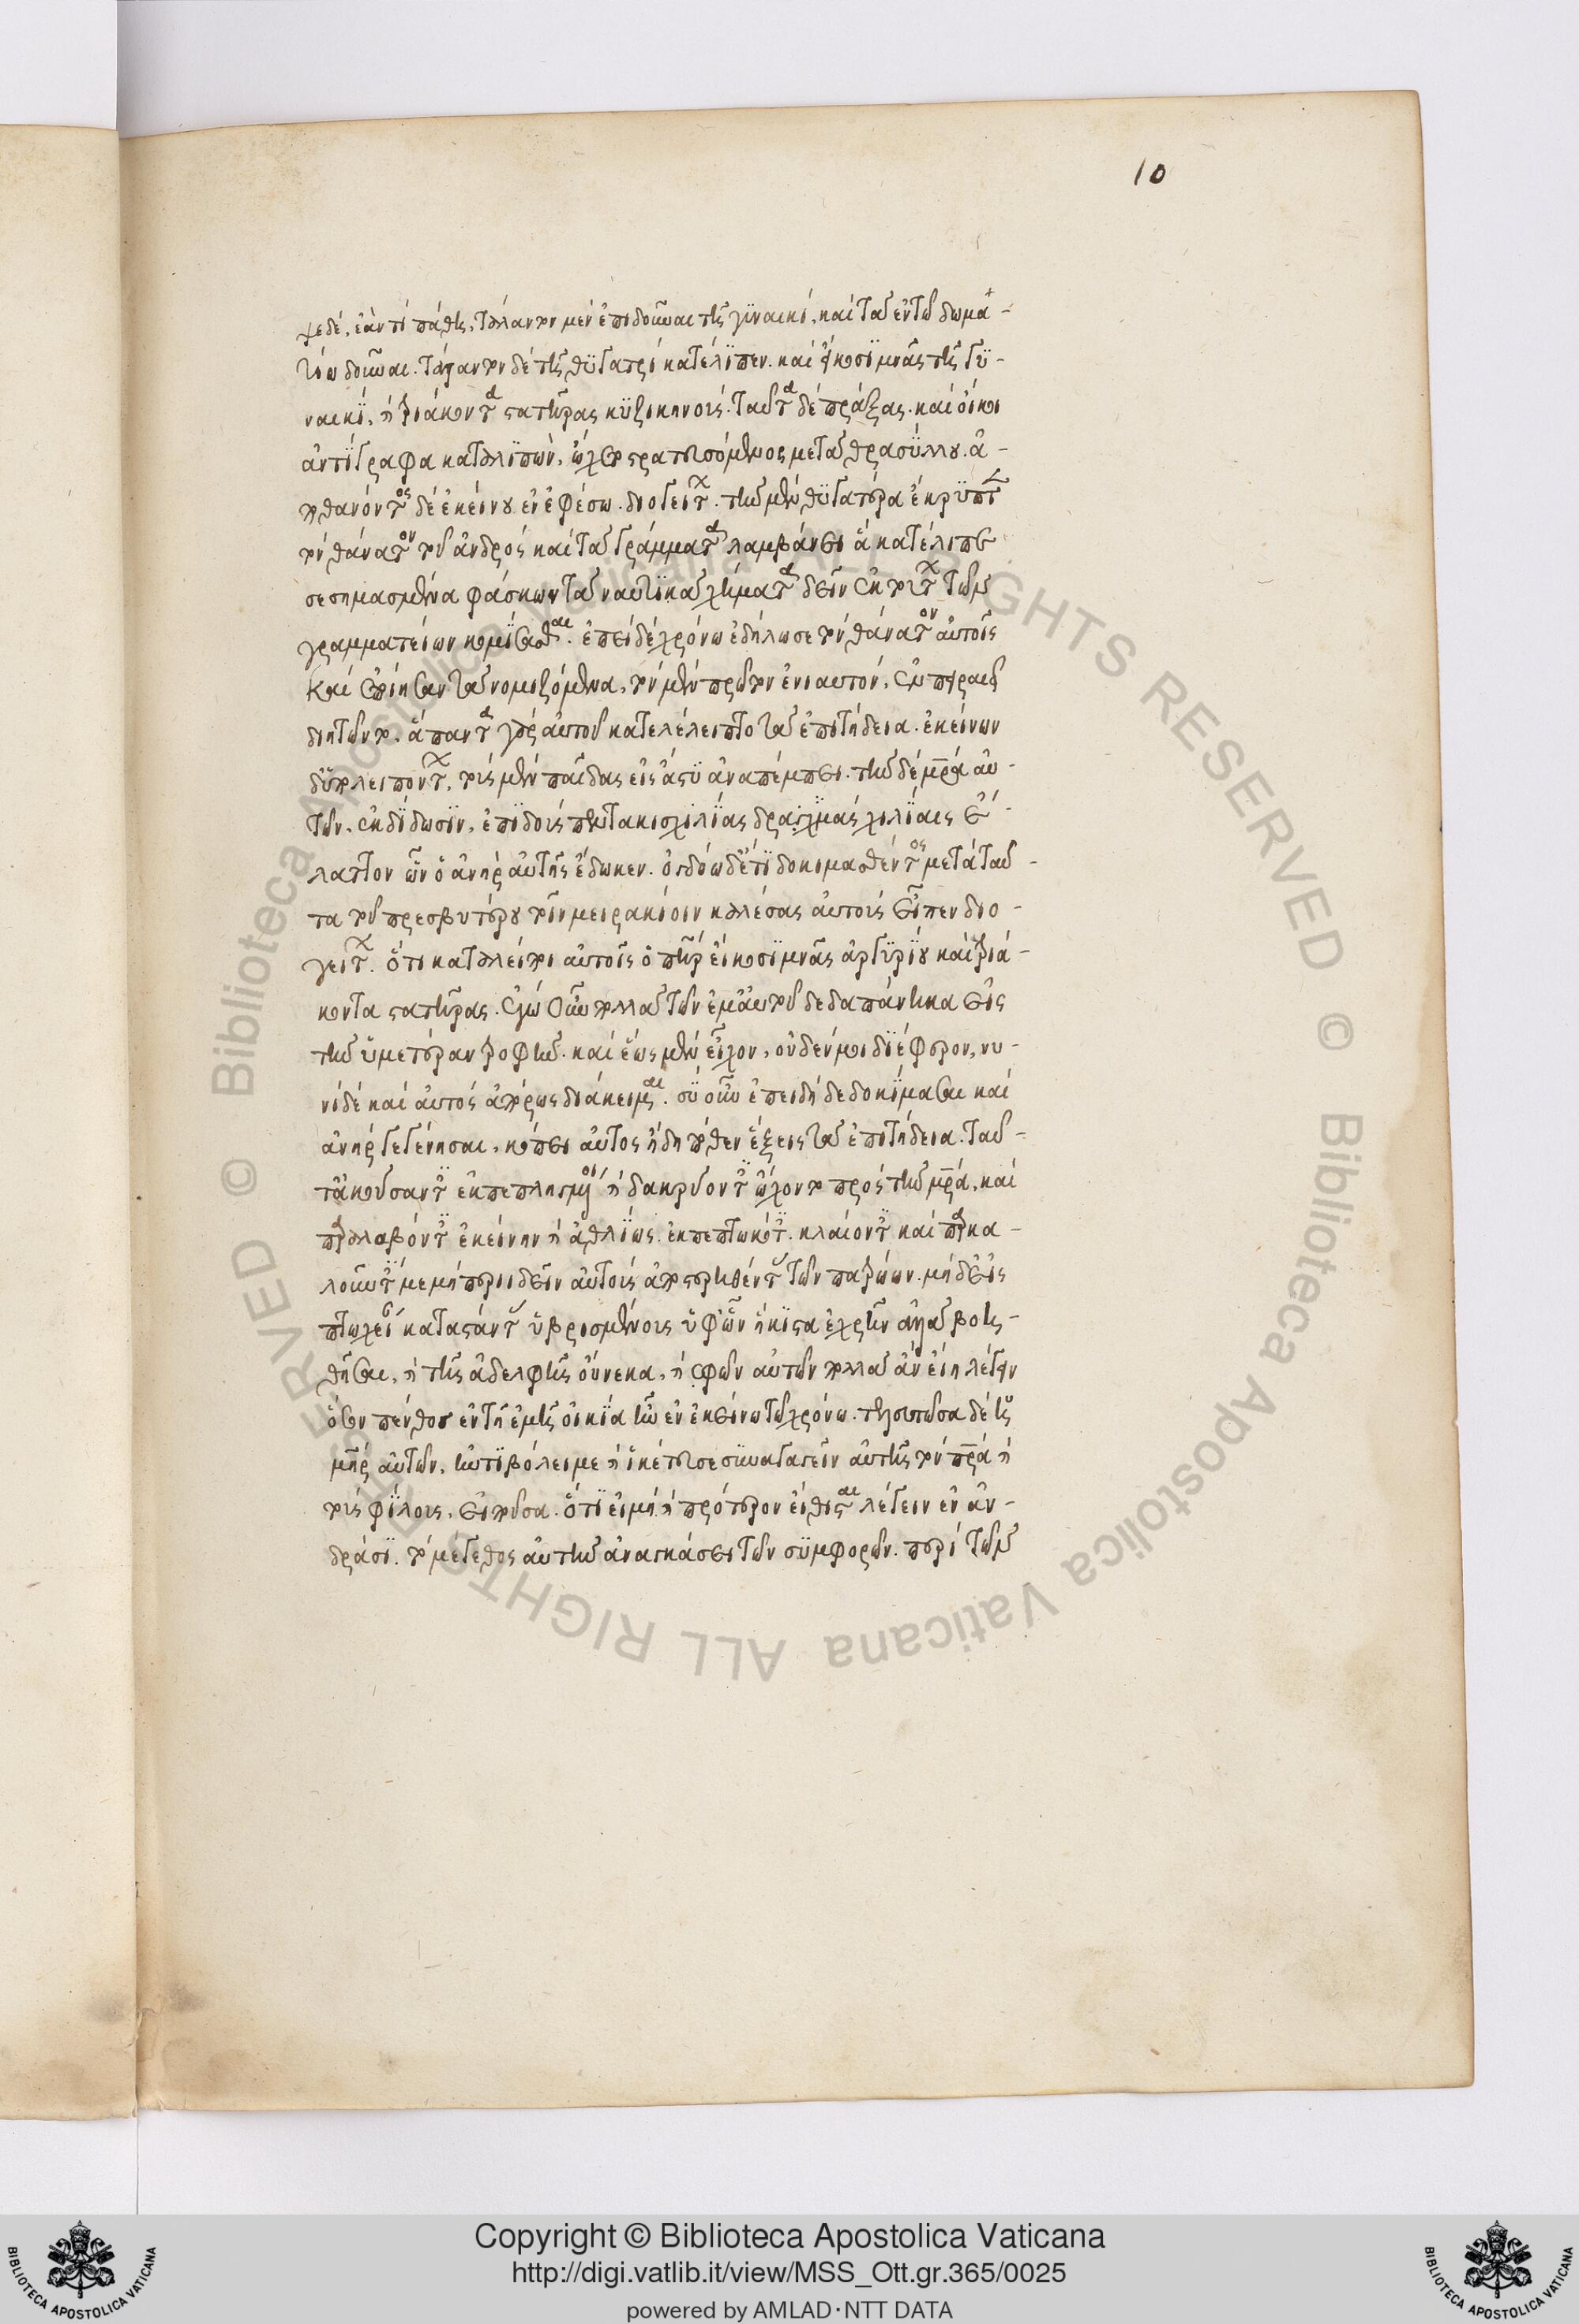 10
ψε δὲ, ἐάν τι πάθη, τάλαντον μὲν ἐπιδοῦναι τῇ γϋναικὶ, καὶ τὰ ἐν τῷ δωμα-
τίω δοῦναι. τάλαντον δὲ τῇ θϋγατρὶ κατέλϊπεν. καὶ εἴκοσϊ μνᾶς τῇ γϋ-
ναικϊ, καὶ τριάκοντα στατῆρας κϋζικηνούς. ταῦτα δὲ πράξας. καὶ οἴκοι
ἀντϊγραφα καταλιπὼν, ὤχετο στρατευσόμενος μετὰ θρασϋλλου. ἀ-
ποθανόντος δὲ ἐκείνου ἐν ἐφέσω. διογείτων. τὴν μὲν θϋγατέρα ἔκρϋπτε
τὸν θάνατον τοῦ ἀνδρὸς καὶ τὰ γράμματα λαμβάνει ἃ κατέλιπε
σεσημασμένα φάσκων τὰ ναυτϊκὰ χρήματα δεῖν ἐκ τούτων τῶν
γραμματείων κομϊσασθαι. ἐπεὶ δὲ χρόνω ἐδήλωσε τὸν θάνατον αὐτοῖς
καὶ ἐποίησαν τὰ νομιζόμενα, τὸν μὲν πρῶτον ἐνιαυτὸν, ἐν πειραιεῖ
διητῶντο. ἅπαντα γὰρ αὐτοῦ κατελέλειπτο τὰ ἐπιτήδεια. ἐκείνων
δὲ ἐπιλειπόντων, τοὺς μὲν παῖδας εἰς ἄστϋ ἀναπέμπει. τὴν δὲ μητέρα αὐ-
τῶν, ἐκδϊδωσϊν, ἐπϊδοὺς πεντακισχϊλϊας δραχμὰς χιλϊαις ἔ-
λαττον ὧν ὁ ἀνὴρ αὐτῆς ἔδωκεν. ὀγδόω δ' ἔτϊ δοκιμασθέντος μετὰ ταῦ-
τα τοῦ πρεσβυτέρου τοῖν μειρακίοιν καλέσας αὐτοὺς εἶπεν διο-
γείτων. ὅτι καταλείποι αὐτοῖς ὁ πατὴρ εἴκοσϊ μνᾶς ἀργϋρϊου καὶ τριά-
κοντα στατῆρας. ἐγὼ οὖν πολλὰ τῶν ἐμαυτοῦ δεδαπάνηκα εἰς
τὴν ὑμετέραν τροφὴν. καὶ ἕως μὲν εἶχον, οὐδέν μοι δϊέφερον, νυ-
νὶ δὲ καὶ αὐτὸς ἀπόρως διάκειμαι. σϋ οὖν ἐπειδὴ δεδοκϊμασαι καὶ
ἀνὴρ γεγένησαι, σκόπει αὐτὸς ἤδη πόθεν ἕξεις τὰ ἐπιτήδεια. ταῦ-
τ' ἀκούσαντες ἐκπεπληγμένοι καὶ δακρύοντες ὤχοντο πρὸς τὴν μητέρα, καὶ
παραλαβόντες ἐκείνην καὶ ἀθλϊως. ἐκπεπτωκότες. κλαίοντες καὶ παρακα-
λοῦντές με μὴ περιιδεῖν αὐτοὺς ἀποστερηθέντας τῶν πατρώων. μήδ' εἰς
πτωχείαν καταστάντας ὑβρισμένους ὑφ' ὧν ἥκϊστα ἐχρῆν ἀλλὰ βοη-
θῆσαι, καὶ τῆς ἀδελφῆς οὕνεκα, καὶ σφῶν αὐτῶν πολλὰ ἂν εἴη λέγειν
ὅσον πένθος ἐν τῇ ἐμῇ οἰκϊα ἦν ἐν ἐκείνω τῷ χρόνω. τελευτῶσα δὲ ἡ
μήτηρ αὐτῶν, ἠντϊβόλει με καὶ ἱκέτευσε σϋναγαγεῖν αὐτῆς τὸν πατέρα καὶ
τοὺς φϊλους, εἰποῦσα. ὅτϊ εἰ μὴ καὶ πρότερον εἴθισται λέγειν ἐν ἀν-
δράσϊ. τὸ μέγεθος αὐτὴν ἀναγκάσει τῶν σϋμφορῶν. περὶ τῶν
Copyright © Biblioteca Apostolica Vaticana
http://digi.vatlib.it/view/MSS_Ott.gr.365/0025
powered by AMLAD·NTT DATA
BIBLIOTECA APOSTOLICA VATICANA
BIBLIOTECA APOSTOLICA VATICANA
© Biblioteca Apostolica Vaticana ALL RIGHTS RESERVED © Biblioteca Apostolica Vaticana ALL RIGHTS RESERVED